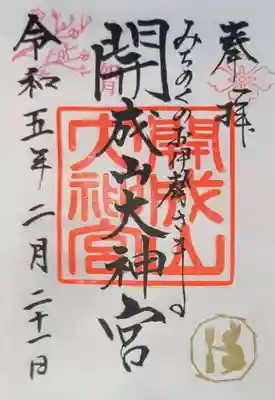 奉拝
みちのくのお伊勢さま
開成山大神宮
開成山
大神宮
令和五年二月二十一日